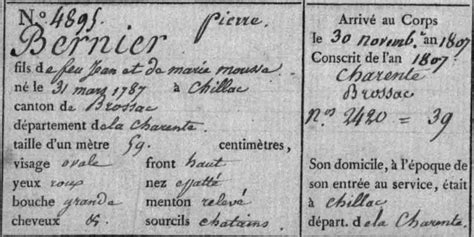 N.º 4895. Pierre.
Bernier
fils de feu Jean et de marie mousse
né le 31 mars 1787 à Chillac
canton de Brossac
département de la Charente.
taille d'un mètre 59. centimètres,
visage ovale front haut
yeux roux nez effatté
bouche grande menton relevé
cheveux & sourcils chatains.
Arrivé au Corps
le 30 novemb. an 1807
Conscrit de l'an 1807
Charente
Brossac
Nos 2420 = 39
Son domicile, à l'époque de
son entrée au service, était
à chillac
départ. de la Charente